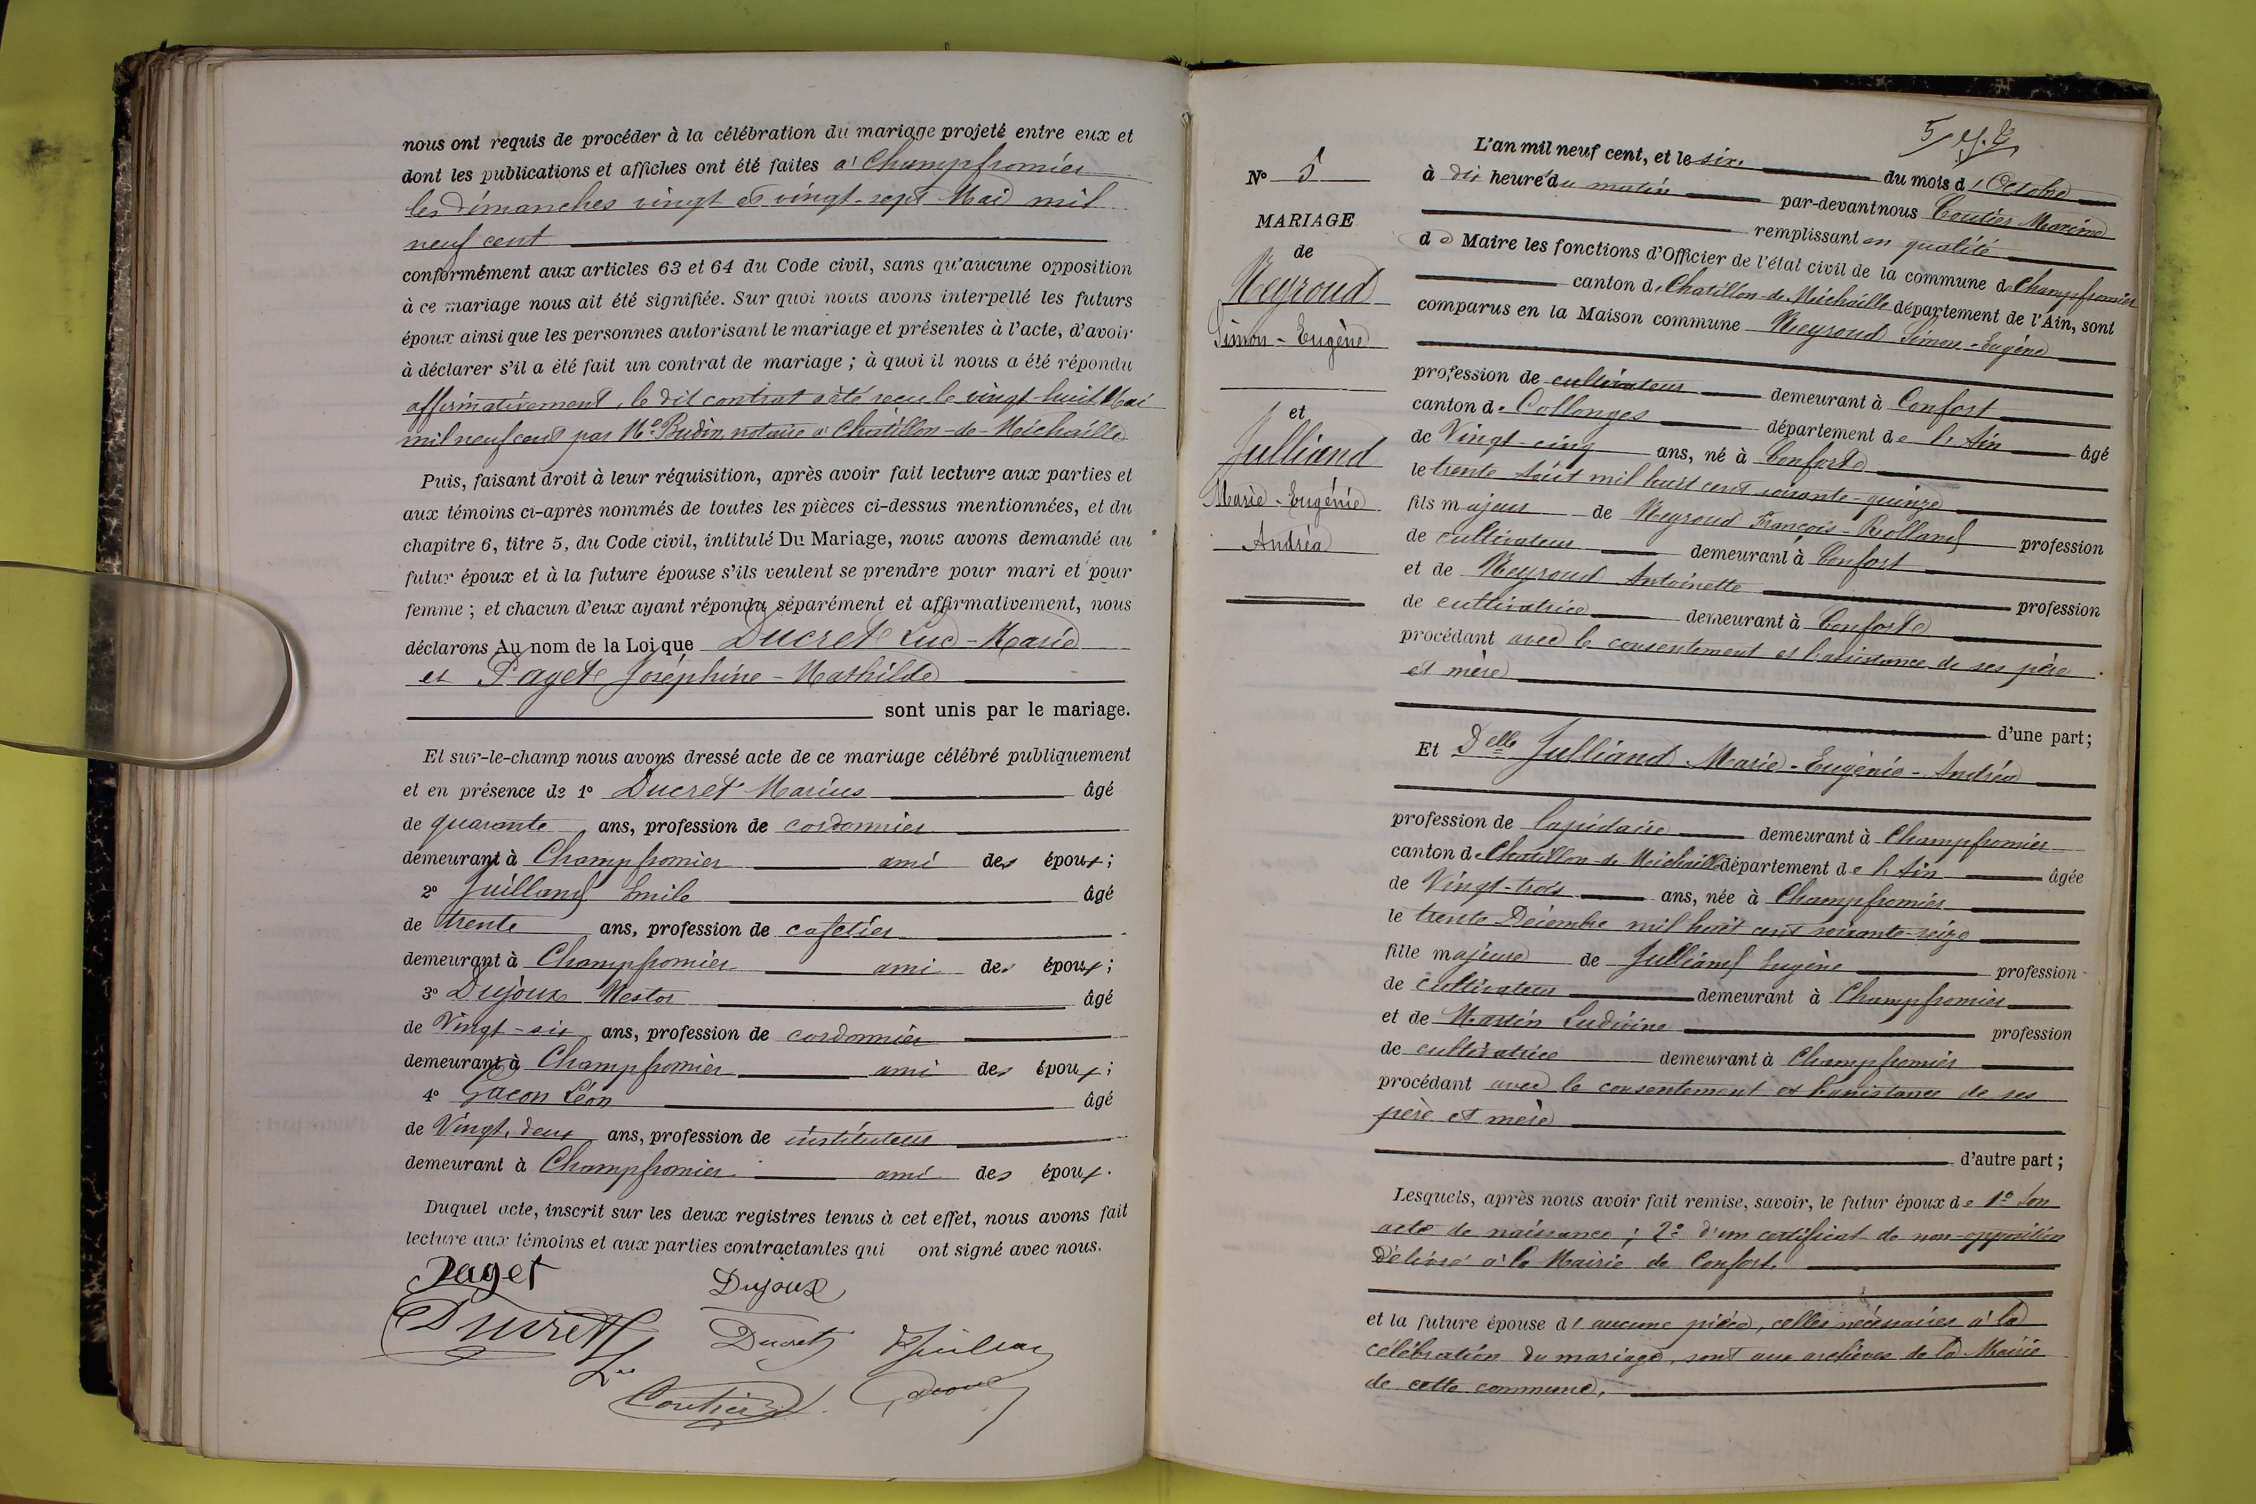 nous ont requis de procéder à la célébration du mariage projeté entre eux et
dont les publications et affiches ont été faites à Champfromier
les dimanches vingt et vingt-sept Mai mil
neuf cent
conformément aux articles 63 et 64 du Code civil, sans qu'aucune opposition
à ce mariage nous ait été signifiée. Sur quoi nous avons interpellé les futurs
époux ainsi que les personnes autorisant le mariage et présentes à l'acte, d'avoir
à déclarer s'il a été fait un contrat de mariage ; à quoi il nous a été répondu
affirmativement, le dit contrat a été reçu le vingt-huit Mai
mil neuf cent par Me Budin, notaire à Chatillon-de-Michaille
Puis, faisant droit à leur réquisition, après avoir fait lecture aux parties et
aux témoins ci-après nommés de toutes les pièces ci-dessus mentionnées, et du
chapitre 6, titre 5, du Code civil, intitulé Du Mariage, nous avons demandé au
futur époux et à la future épouse s'ils veulent se prendre pour mari et pour
femme ; et chacun d'eux ayant répondu séparément et affirmativement, nous
déclarons Au nom de la Loi que Ducret Luc-Marie
et Paget Joséphine-Mathilde
sont unis par le mariage.
Et sur-le-champ nous avons dressé acte de ce mariage célébré publiquement
et en présence de 1° Ducret Marius âgé
de quarante ans, profession de cordonnier
demeurant à Champfromier ami des époux ;
2° Juilland Emile âgé
de trente ans, profession de cafetier
demeurant à Champfromier ami des époux ;
3° Dujoux Nestor âgé
de Vingt-six ans, profession de cordonnier
demeurant à Champfromier ami des époux ;
4° Gacon Léon âgé
de Vingt-deux ans, profession de instituteur
demeurant à Champfromier ami des époux.
Duquel acte, inscrit sur les deux registres tenus à cet effet, nous avons fait
lecture aux témoins et aux parties contractantes qui ont signé avec nous.
Paget Dujoux
Ducret Luc Ducret Juilland
Coutier Gacon
5
N° 5
MARIAGE
de
Neyroud
Simon-Eugène
et
Julliand
Marie-Eugénie
Andréa
L'an mil neuf cent, et le six du mois d'Octobre
à dix heures du matin par-devant nous Coutier Maxime
remplissant en qualité
de Maire les fonctions d'Officier de l'état civil de la commune de Champfromier
canton de Chatillon-de-Michaille département de l'Ain, sont
comparus en la Maison commune Neyroud Simon-Eugène
profession de cultivateur demeurant à Confort
canton de Collonges département de l'Ain âgé
de Vingt-cinq ans, né à Confort
le trente Août mil huit cent soixante-quinze
fils majeur de Neyroud François-Rolland profession
de cultivateur demeurant à Confort
et de Neyroud Antoinette profession
de cultivatrice demeurant à Confort
procédant avec le consentement et l'assistance de ses père
et mère
d'une part ;
Et Delle Julliand Marie-Eugénie-Andréa
profession de lapidaire demeurant à Champfromier
canton de Chatillon-de-Michaille département de l'Ain âgée
de Vingt-trois ans, née à Champfromier
le trente Décembre mil huit cent soixante-seize
fille majeure de Julliand Eugène profession
de cultivateur demeurant à Champfromier
et de Martin Ludivine profession
de cultivatrice demeurant à Champfromier
procédant avec le consentement et l'assistance de ses
père et mère
d'autre part ;
Lesquels, après nous avoir fait remise, savoir, le futur époux de 1° Son
acte de naissance ; 2° d'un certificat de non-opposition
délivré à la Mairie de Confort.
et la future épouse d'aucune pièce, celles nécessaires à la
célébration du mariage, sont aux archives de la Mairie
de cette commune.